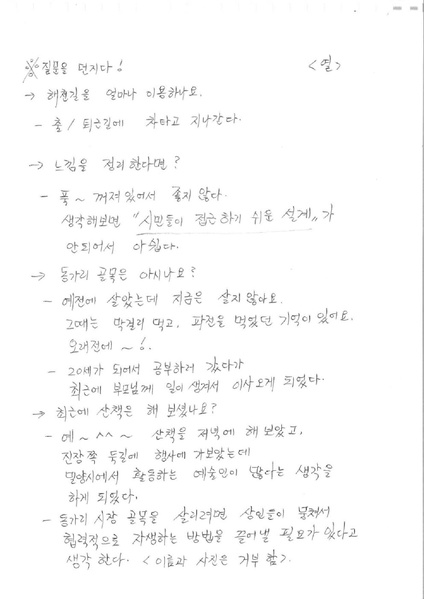 ※ 질문을 던지다! <열>
→ 해천길을 얼마나 이용하나요.
- 출/퇴근길에 차타고 지나간다.
→ 느낌을 정리한다면?
- 푹~ 꺼져있어서 좋지 않다.
생각해보면 "시민들이 접근하기 쉬운 설계"가
안되어서 아쉽다.
→ 동가리 골목은 아시나요?
- 예전에 살았는데 지금은 살지 않아요.
그때는 막걸리 먹고, 파전을 먹었던 기억이 있어요.
오래전에 ~!.
- 20세가 되어서 공부하러 갔다가
최근에 부모님께 일이 생겨서 이사오게 되었다.
→ 최근에 산책은 해 보셨나요?
- 예~^^~ 산책을 저녁에 해 보았고,
진장쪽 둑길에 행사에 가보았는데
밀양시에서 활동하는 예술인이 많다는 생각을
하게 되었다.
- 동가리 시장 골목을 살리려면 상인들이 뭉쳐서
협력적으로 자생하는 방법을 끌어낼 필요가 있다고
생각 한다. <이름과 사진은 거부 함>.